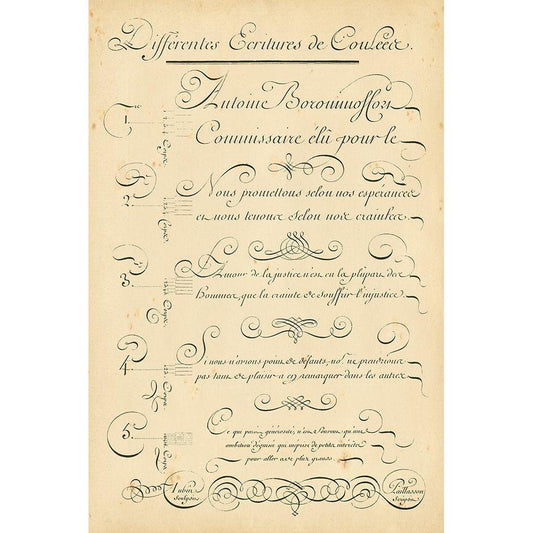 Différentes Ecritures de Coulées.
1.
Antoine
Commissaire élû pour le
2.
Nous promettons selon nos espérances
et nous tenons selon nos craintes.
3.
L'Amour de la justice n'est en la plûpart des
Hommes, que la crainte de souffrir l'injustice.
4.
Si nous n'avions point de défauts, no.s ne prendrions
pas tant de plaisir a en remarquer dans les autres.
5.
Ce qui paroit générosité, n'est souvent qu'une
ambition déguisée qui méprise de petits intérêts
pour aller a de plus grands.
Aubin
Sculpsit
Paillasson
Scripsit